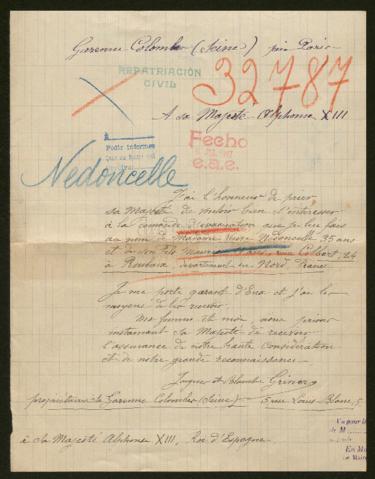 Garenne Colombes (Seine) près Paris
REPATRIACIÓN
CIVIL
32787
A sa Majesté Alphonse XIII
Pedir informes
Fecho
e.a.e.
Nedoncelle
J'ai l'honneur de prier
sa Majesté de vouloir bien s'intéresser
à la demande d'évacuation que je lui fais
au nom de Madame Veuve Nédoncelle 35 ans
et de son fils Maurice rue Colbert, 24
à Roubaix, département du Nord, France.
Je me porte garant d'Eux et j'ai les
moyens de les recevoir.
Ma femme et moi, nous prions
instamment sa Majesté de recevoir
l'assurance de notre haute considération
et de notre grande reconnaissance.
et Blanche
propriétaires la Garenne Colombes (Seine) 5 rue Louis Blanc, 5
Vu pour l
de M
En M
le Maire
à Sa Majesté Alphonse XIII, Roi d'Espagne